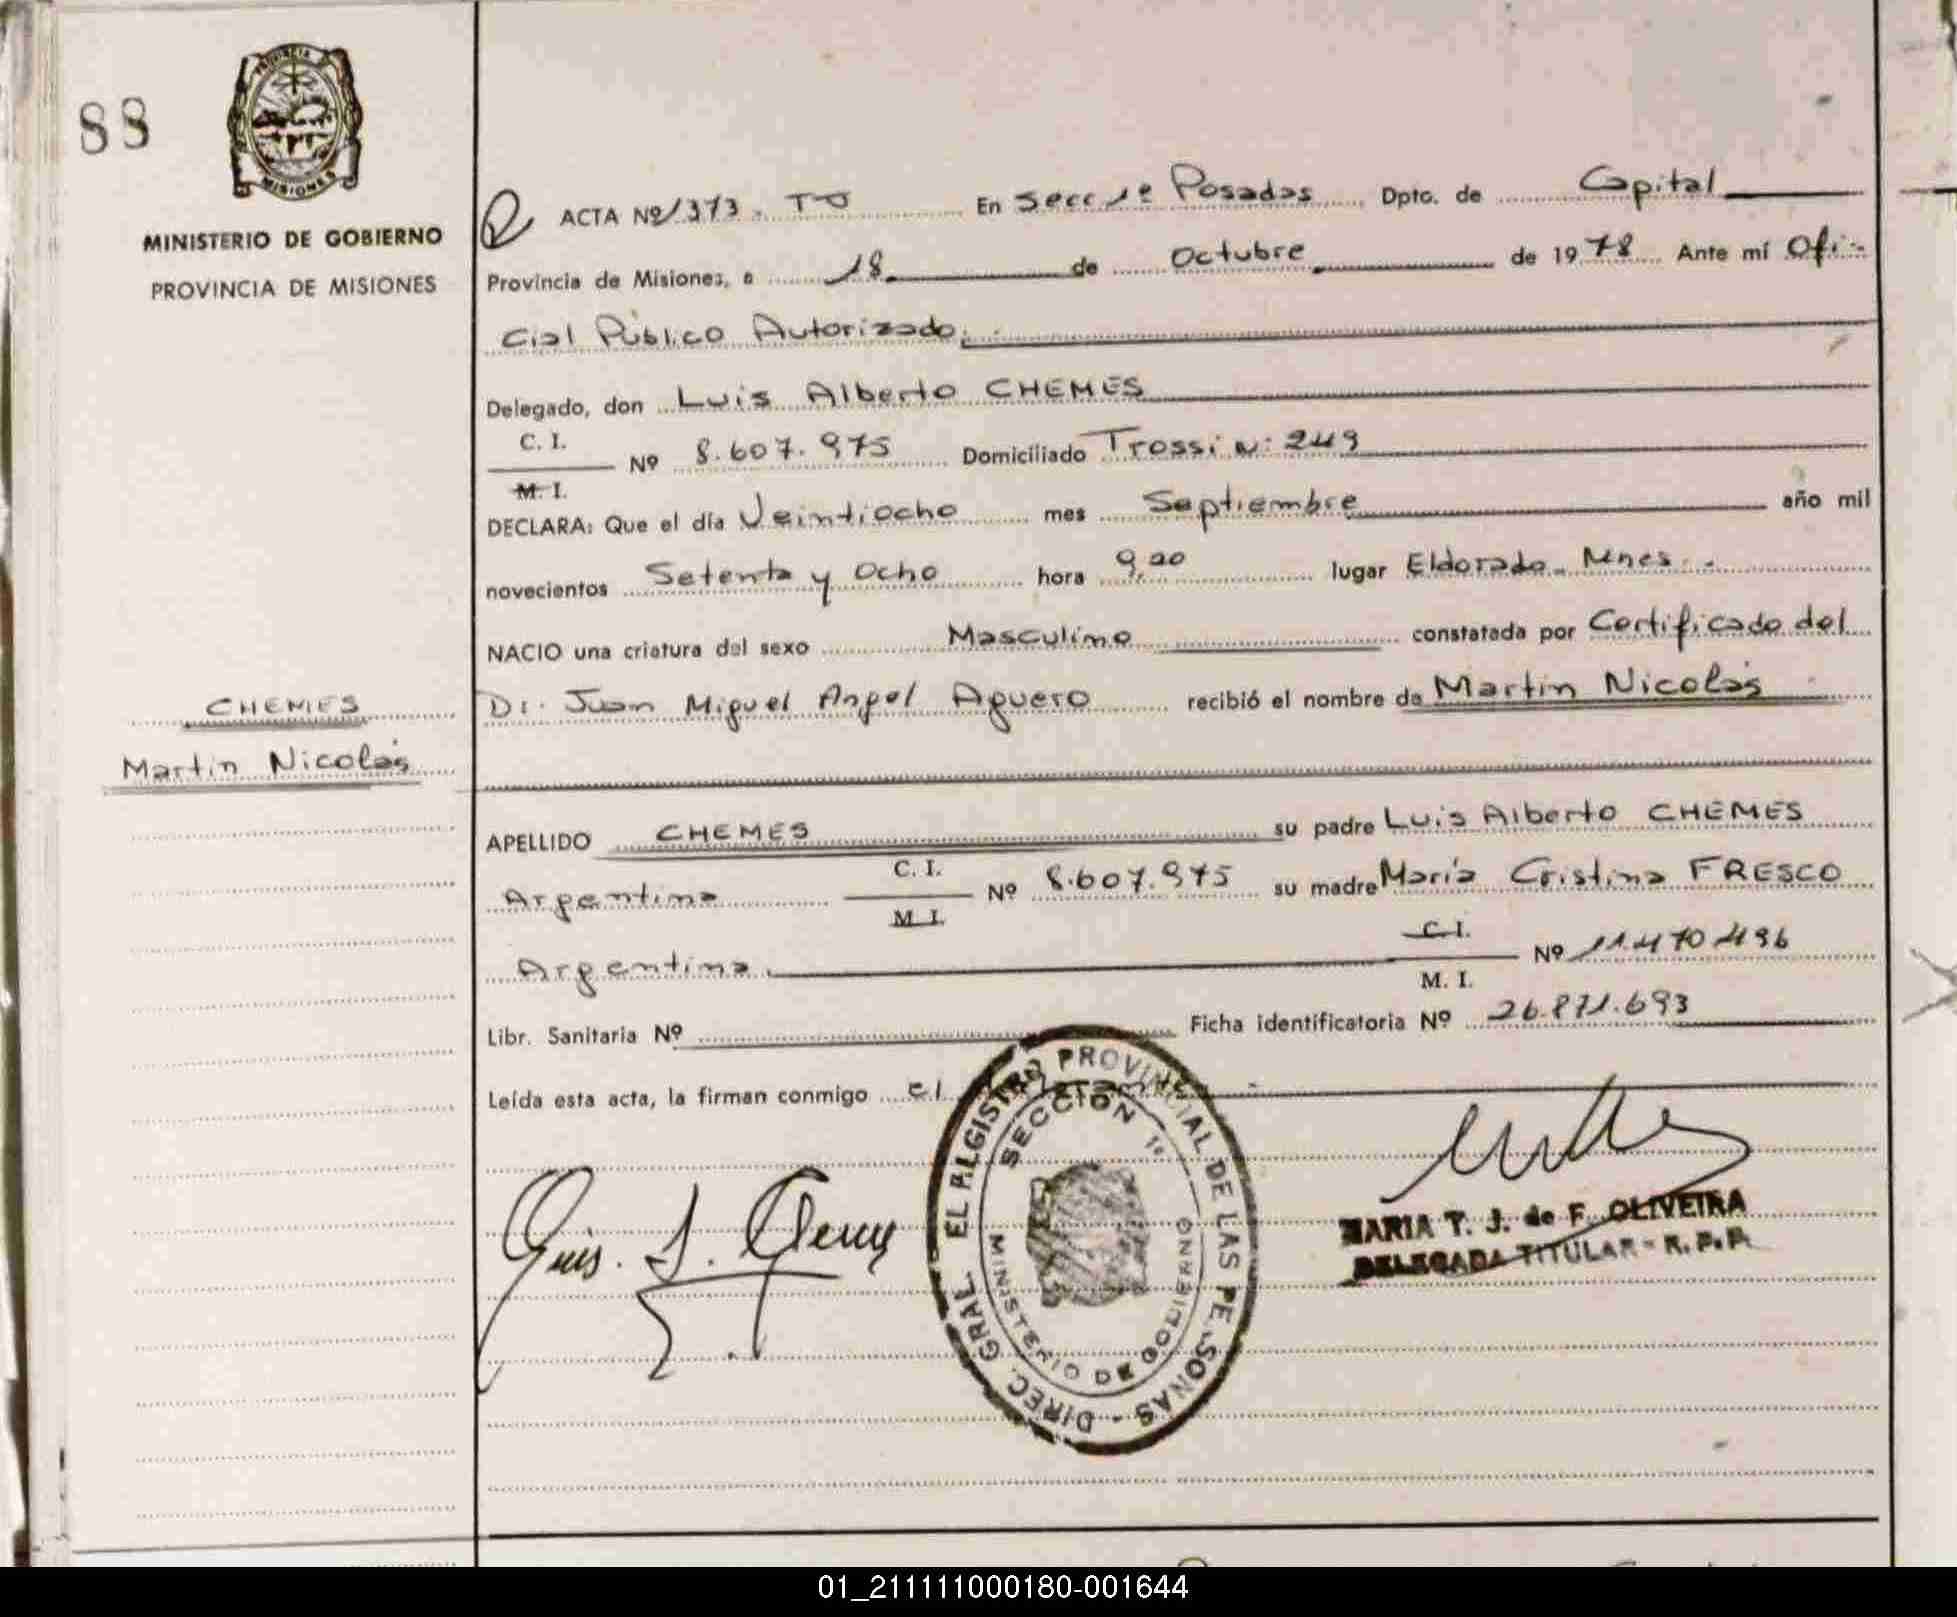 88
PROVINCIA
MISIONES
MINISTERIO DE GOBIERNO
PROVINCIA DE MISIONES
CHEMES
Martin Nicolás
ACTA Nº 1373. TO En Secc 1º Posadas Dpto. de Capital
Provincia de Misiones, a 18 de Octubre de 1978 Ante mí Ofi-
cial Público Autorizado.
Delegado, don Luis Alberto CHEMES
C. I.
Nº 8.607.975 Domiciliado Trossi Nº 249
M. I.
DECLARA: Que el día Veintiocho mes Septiembre año mil
novecientos Setenta y Ocho hora 9,20 lugar Eldorado-Mnes.
NACIO una criatura del sexo Masculino constatada por Certificado del
Dr. Juan Miguel Angel Aguero recibió el nombre de Martin Nicolás
APELLIDO CHEMES su padre Luis Alberto CHEMES
Argentina C. I. Nº 8.607.975 su madre María Cristina FRESCO
M. I.
Argentina. C. I. Nº 11.470.496
M. I.
Libr. Sanitaria Nº Ficha identificatoria Nº 26.871.693
Leída esta acta, la firman conmigo el
DIREC. GRAL. EL REGISTRO PROVINCIAL DE LAS PE SONAS -
SECCION 1º
MINISTERIO DE GOBIERNO
MARIA T. J. de F. OLIVEIRA
DELEGADA TITULAR - R. P. P.
01_211111000180-001644